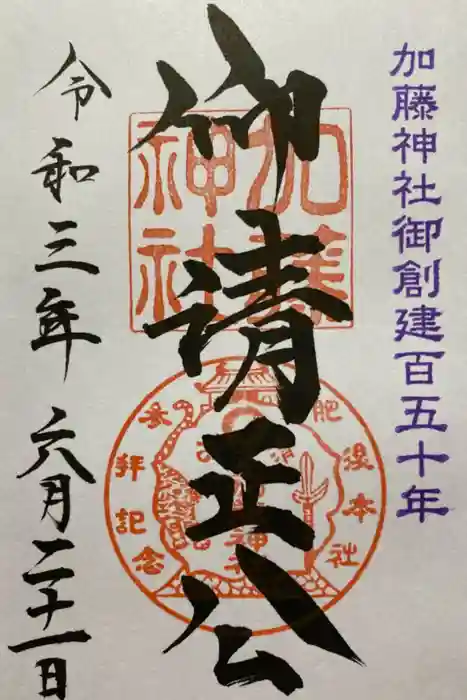 加藤神社御創建百五十年
仰清正公
加藤
神社
肥後本社
参拝記念
令和三年六月二十一日